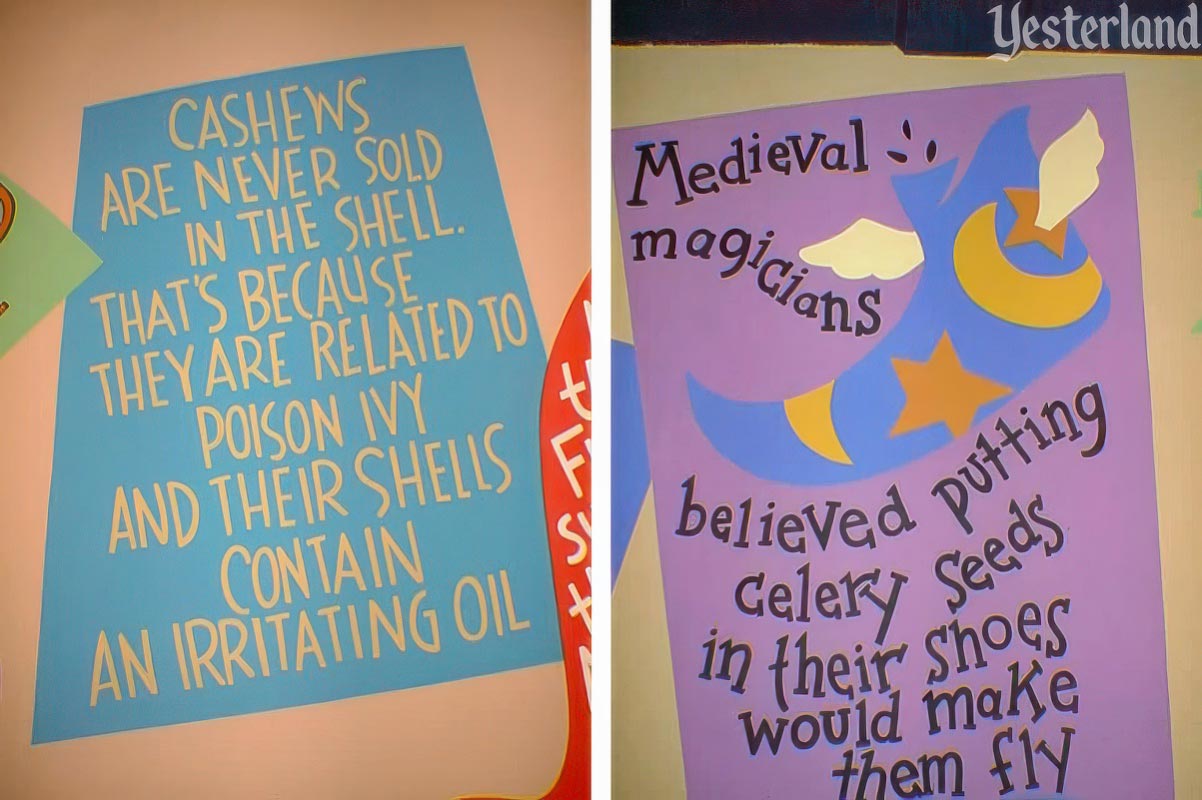 CASHEWS
ARE NEVER SOLD
IN THE SHELL.
THAT'S BECAUSE
THEY ARE RELATED TO
POISON IVY
AND THEIR SHELLS
CONTAIN
AN IRRITATING OIL
Yesterland
Medieval
magicians
believed putting
celery seeds
in their shoes
would make
them fly